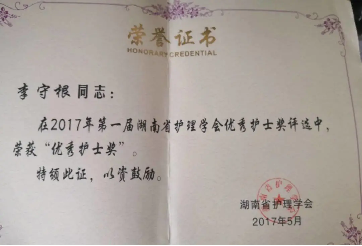 荣誉证书
HONORARY CREDENTIAL
李守根同志:
在2017年第一届湖南省护理学会优秀护士奖评选中,
荣获“优秀护士奖”。
特颁此证,以资鼓励。
湖南省护理学会
2017年5月